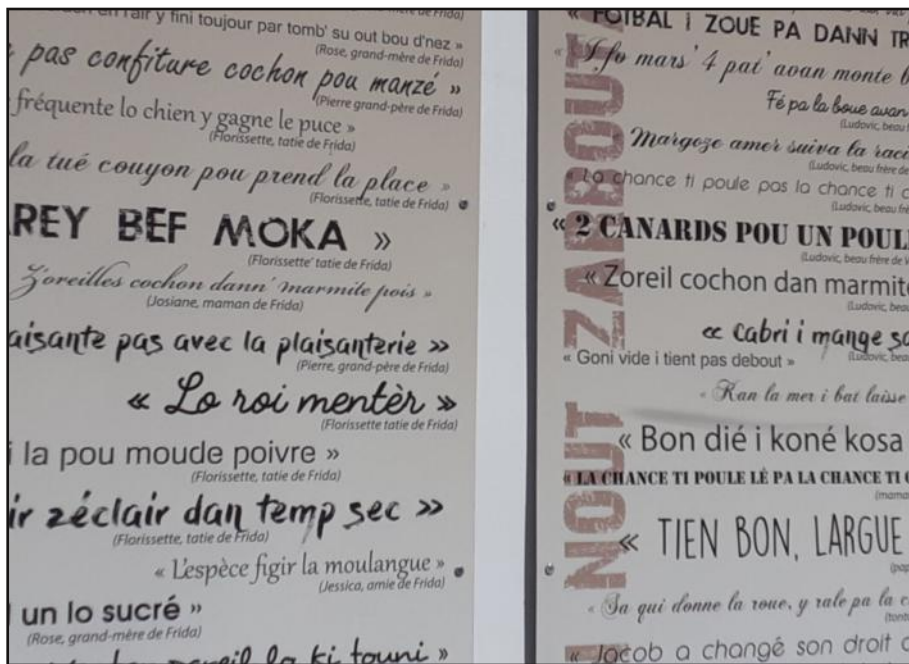 l'air y fini toujour par tomb' su out bou d'nez »
(Rose, grand-mère de Frida)
pas confiture cochon pou manzé »
(Pierre grand-père de Frida)
fréquente lo chien y gagne le puce »
(Florissette, tatie de Frida)
la tué couyon pou prend la place »
(Florissette, tatie de Frida)
REY BEF MOKA »
(Florissette' tatie de Frida)
Z'oreilles cochon dann' marmite pois »
(Josiane, maman de Frida)
aisante pas avec la plaisanterie »
(Pierre, grand-père de Frida)
« Lo roi mentèr »
(Florissette tatie de Frida)
i la pou moude poivre »
(Florissette, tatie de Frida)
ir zéclair dan temp sec »
(Florissette, tatie de Frida)
« L'espèce figir la moulangue »
(Jessica, amie de Frida)
un lo sucré »
(Rose, grand-mère de Frida)
la ki touni »
NOUT ZARBOUT
« FOTBAL I ZOUE PA DANN TR
« I fo mars' 4 pat' avan monte b
Fé pa la boue avan
(Ludovic, beau
Margoze amer suiva la raci
(Ludovic, beau frère de
« La chance ti poule pas la chance ti c
(Ludovic, beau frè
« 2 CANARDS POU UN POUL
(Ludovic, beau frère de V
« Zoreil cochon dan marmite
(Ludovic, beau
« Cabri i mange sa
(Ludovic, beau
« Goni vide i tient pas debout »
« Kan la mer i bat laisse
« Bon dié i koné kosa
« LA CHANCE TI POULE LÉ PA LA CHANCE TI C
(mama
« TIEN BON, LARGUE
(pap
« Sa qui donne la roue, y rale pa la c
(tonto
« Jacob a changé son droit d